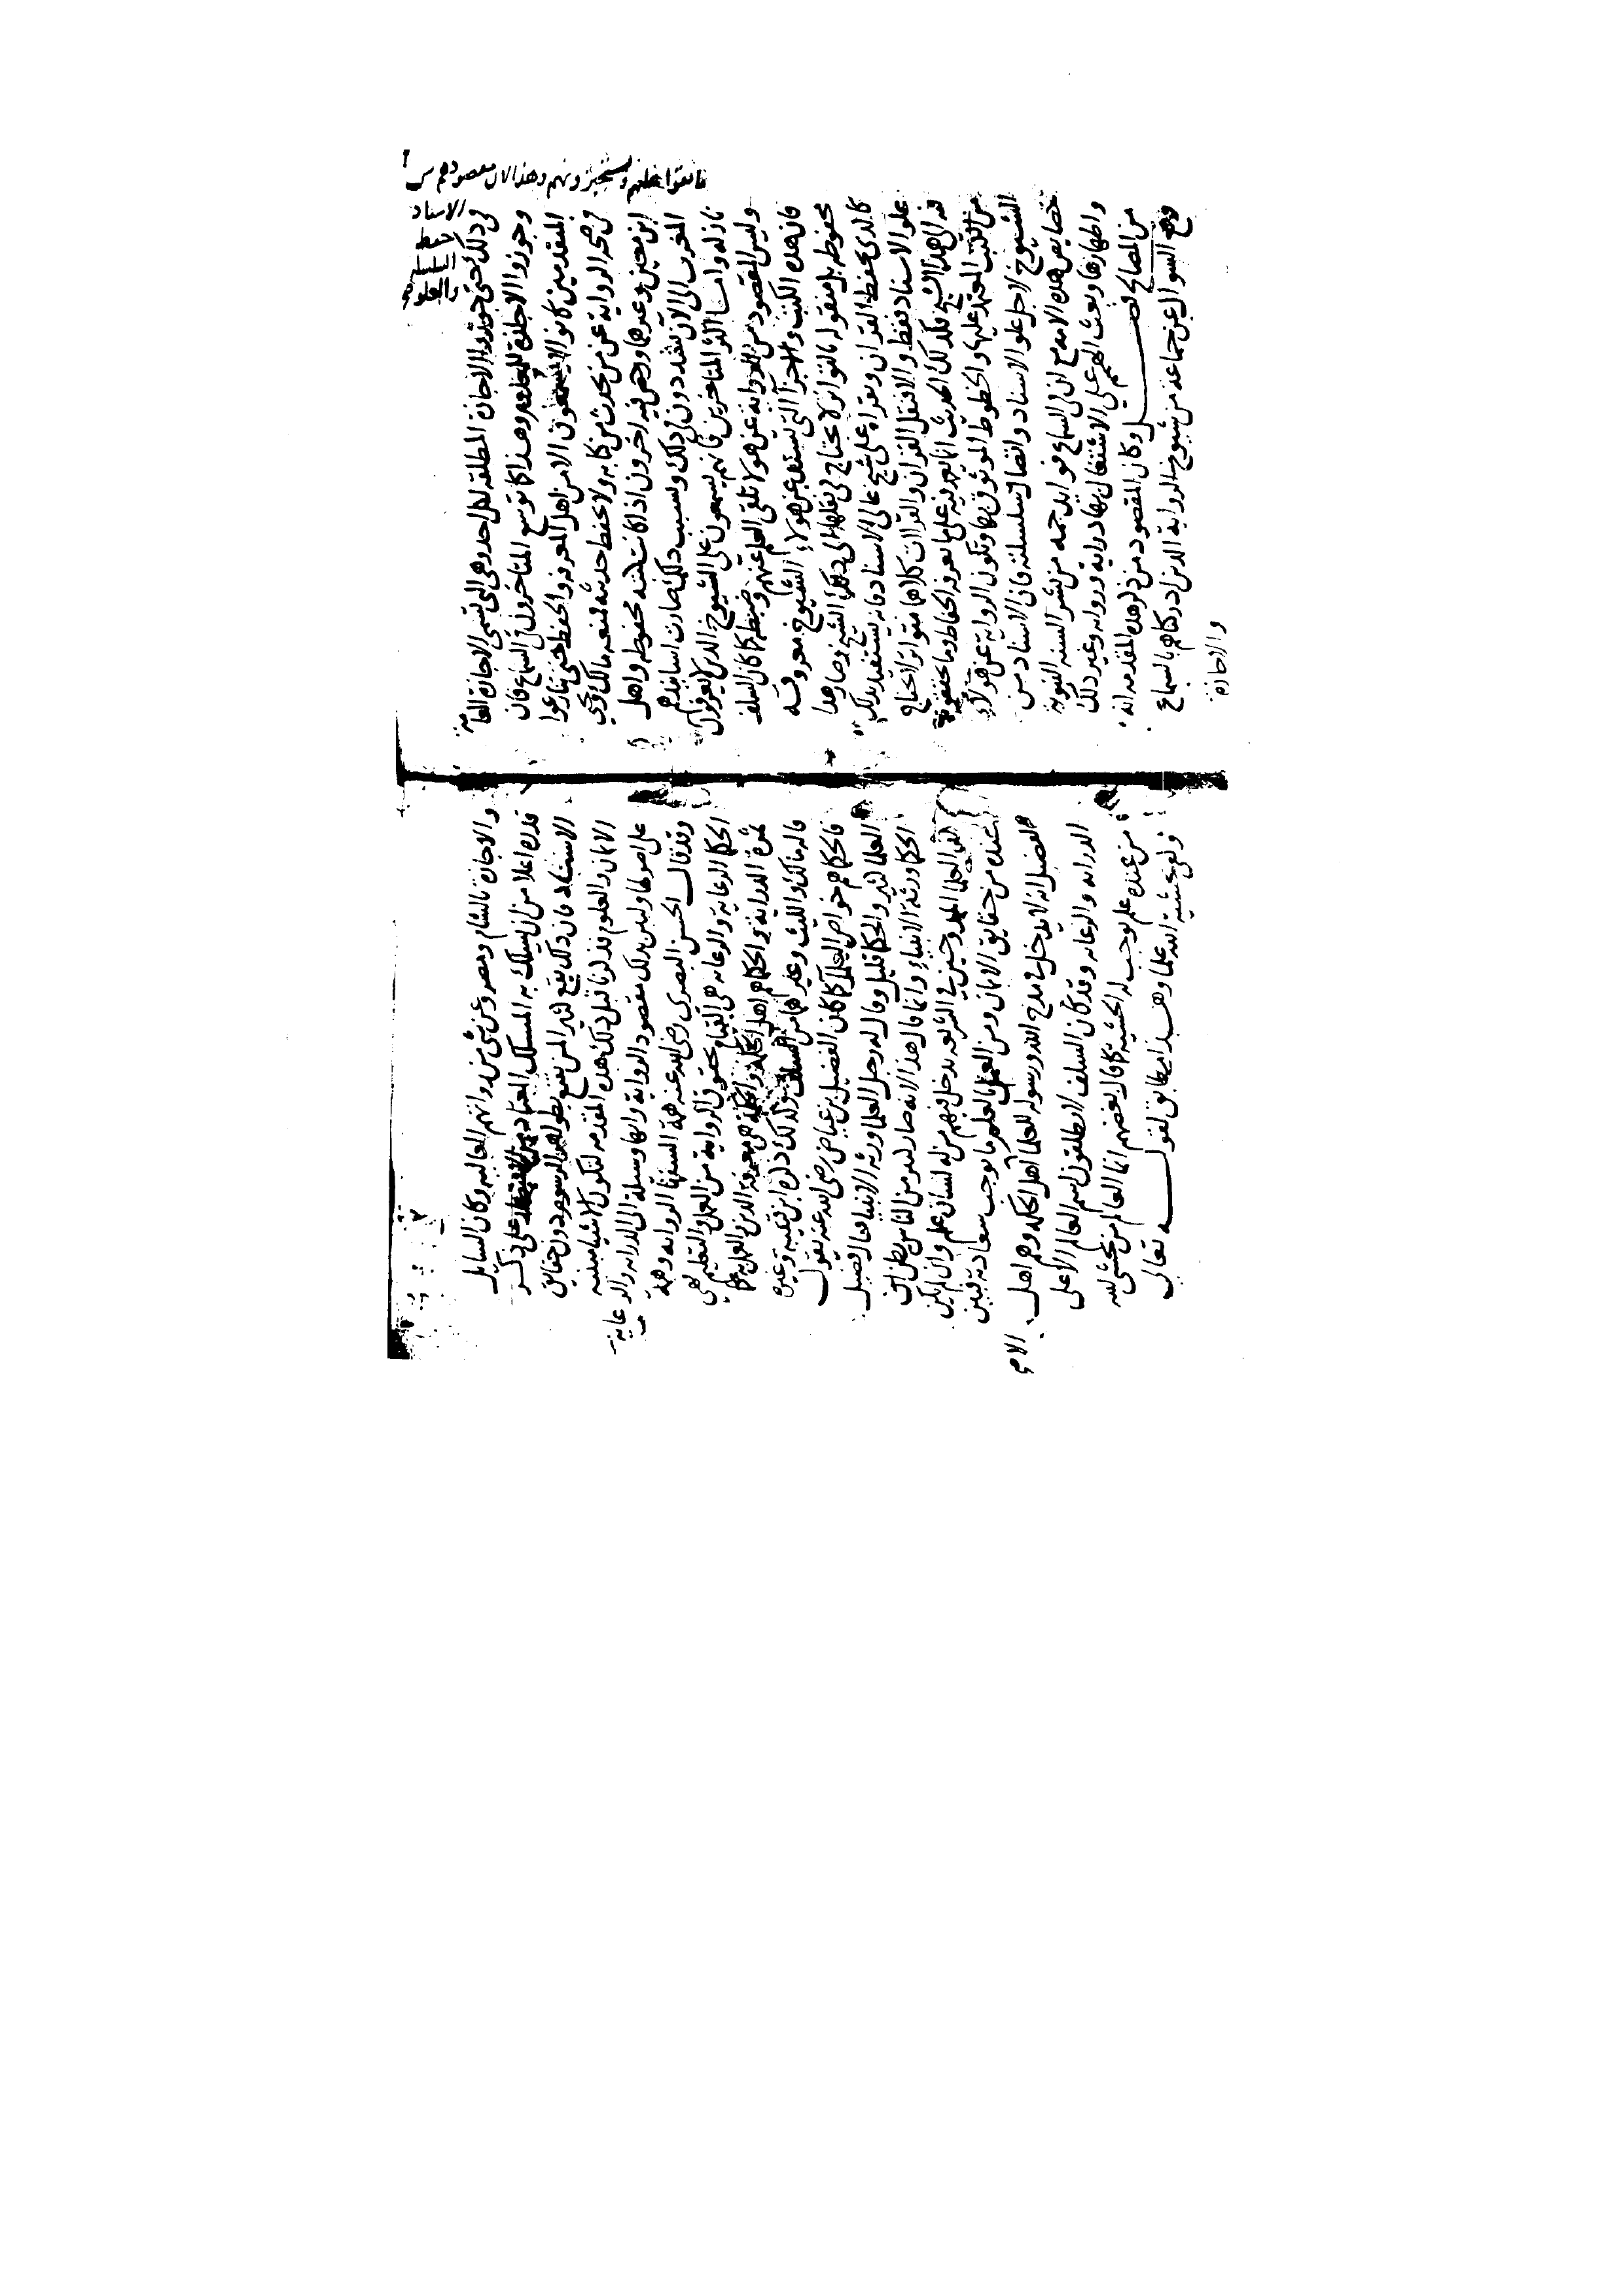 في ذلك حتى جوزوا الاجازة المطلقه لكل احد وهي التي تسمى الاجازة العامة
وجوزوا الاجازة وهذا كما توسع المتاخرون في السماع فان
المتقدمين كانوا لا يسمعون الا من اهل المعرفه والحفظ حتى تنازعوا
في صحة الرواية عن من يحدث من كتابه ولا يحفظ حديثه فمنعه مالك ويحيى
ابن معين وغيرهما ورخص فيه اخرون اذا كانت كتبه محفوظه واهل
المغرب الى الآن يشددون في ذلك وبسبب ذلك صارت اسانيدهم
نازله واما اكثر المتاخرين فانهم يسمعون على الشيوخ الذين لا يعرفون
وليس المقصود من الرواية عن هولا تلقي العلم عنهم وضبطه كما كان السلف
فان هذه الكتب والاجزآ التي عن هولاء الشيوخ معروفه
محفوظه بل منقوله بالتواتر لا تحتاج في نقلها الى ذلك الشيخ وصار هذا
كالذي يحفظ القران ويقراه على شيخ عالي الاسناد فانه يستفيد بذلك
علو الاسناد فقط والا فنقل القران والقراات كلاهما متواتر لا يحتاج
فيه الى هذا الشيخ فكذلك الحديث انما فيه على ما يعرفه الحفاظ وما
من الكتب المعتمد عليها والخطوط الموثوق بها وتكون الرواية عن هولاء
الشيوخ لاجل علو الاسناد واتصال سلسلته فان الاسناد من
خصايص هذه الامه مع ان في السماع فوايد جمه من نشر السنه النبوية
واظهارها وبعث الهمم على الاشتغال بها درايه وروايه وغير ذلك
من المصالح فصل وكان المقصود من ذكر هذه المقدمه انه
وقع السوال عن جماعه من شيوخ الرواية الذين ادركناهم بالسماع
والاجازة
فانهم ويستجيزونهم وهذا لان مقصودهم
الاسناد
والاجازة بالشام ومصر وعن شي من رواتهم العاليه وكان السايل
قدره اعلا من ان يسلك به المسلك المعتاد من على ذكر
الاسناد فان ذلك يقع لكثير ممن يقنع بظواهر الرسوم دون حقايق
الايمان والعلوم فذكرنا قبل ذلك هذه المقدمه لتكون الاشيا مبنيه
على اصولها وليبين بذلك مقصود الرواية وانها وسيلة الى الدرايه والرعاية
وقد قال الحسن البصري رضي الله عنه همة السفها الروايه وهمة
الحكما الرعاية والرعايه هي القيام بحقوق الرواية من العمل والتعليم وهي
ثمرة الدراية والحكما هم اهل الحكمة والحكمة هي معرفة الدين والعمل به كما
قاله مالك والليث وغيرهما من السلف وكذلك ذكره ابن قتيبه وغيره
فالحكما هم خواص العلمآ كما كان الفضيل بن عياض رضي الله عنه يقول
العلما كثير والحكما قليل وقال له رجل العلما ورثه الانبيا فقال فضيل
الحكما ورثة الانبياء وانما قال هذا لانه صار كثير من الناس يظن ان
العلما الممدوحين في الشريعه يدخل فيهم من له لسان علم وان لم يكن
عنده من حقايق الايمان ومن العمل بالعلم ما يوجب سعادته فبين
الفضيل انه لا يدخل في مدح الله ورسوله للعلما الا اهل الحكمه وهم اهل
الدرايه والرعايه وقد كان السلف لا يطلقون اسم العالم الا على
من عنده علم يوجب له الخشية كما قال بعضهم انما العالم من يخشى الله
وكفى بخشية الله علما وهذا مطابق لقوله تعالى